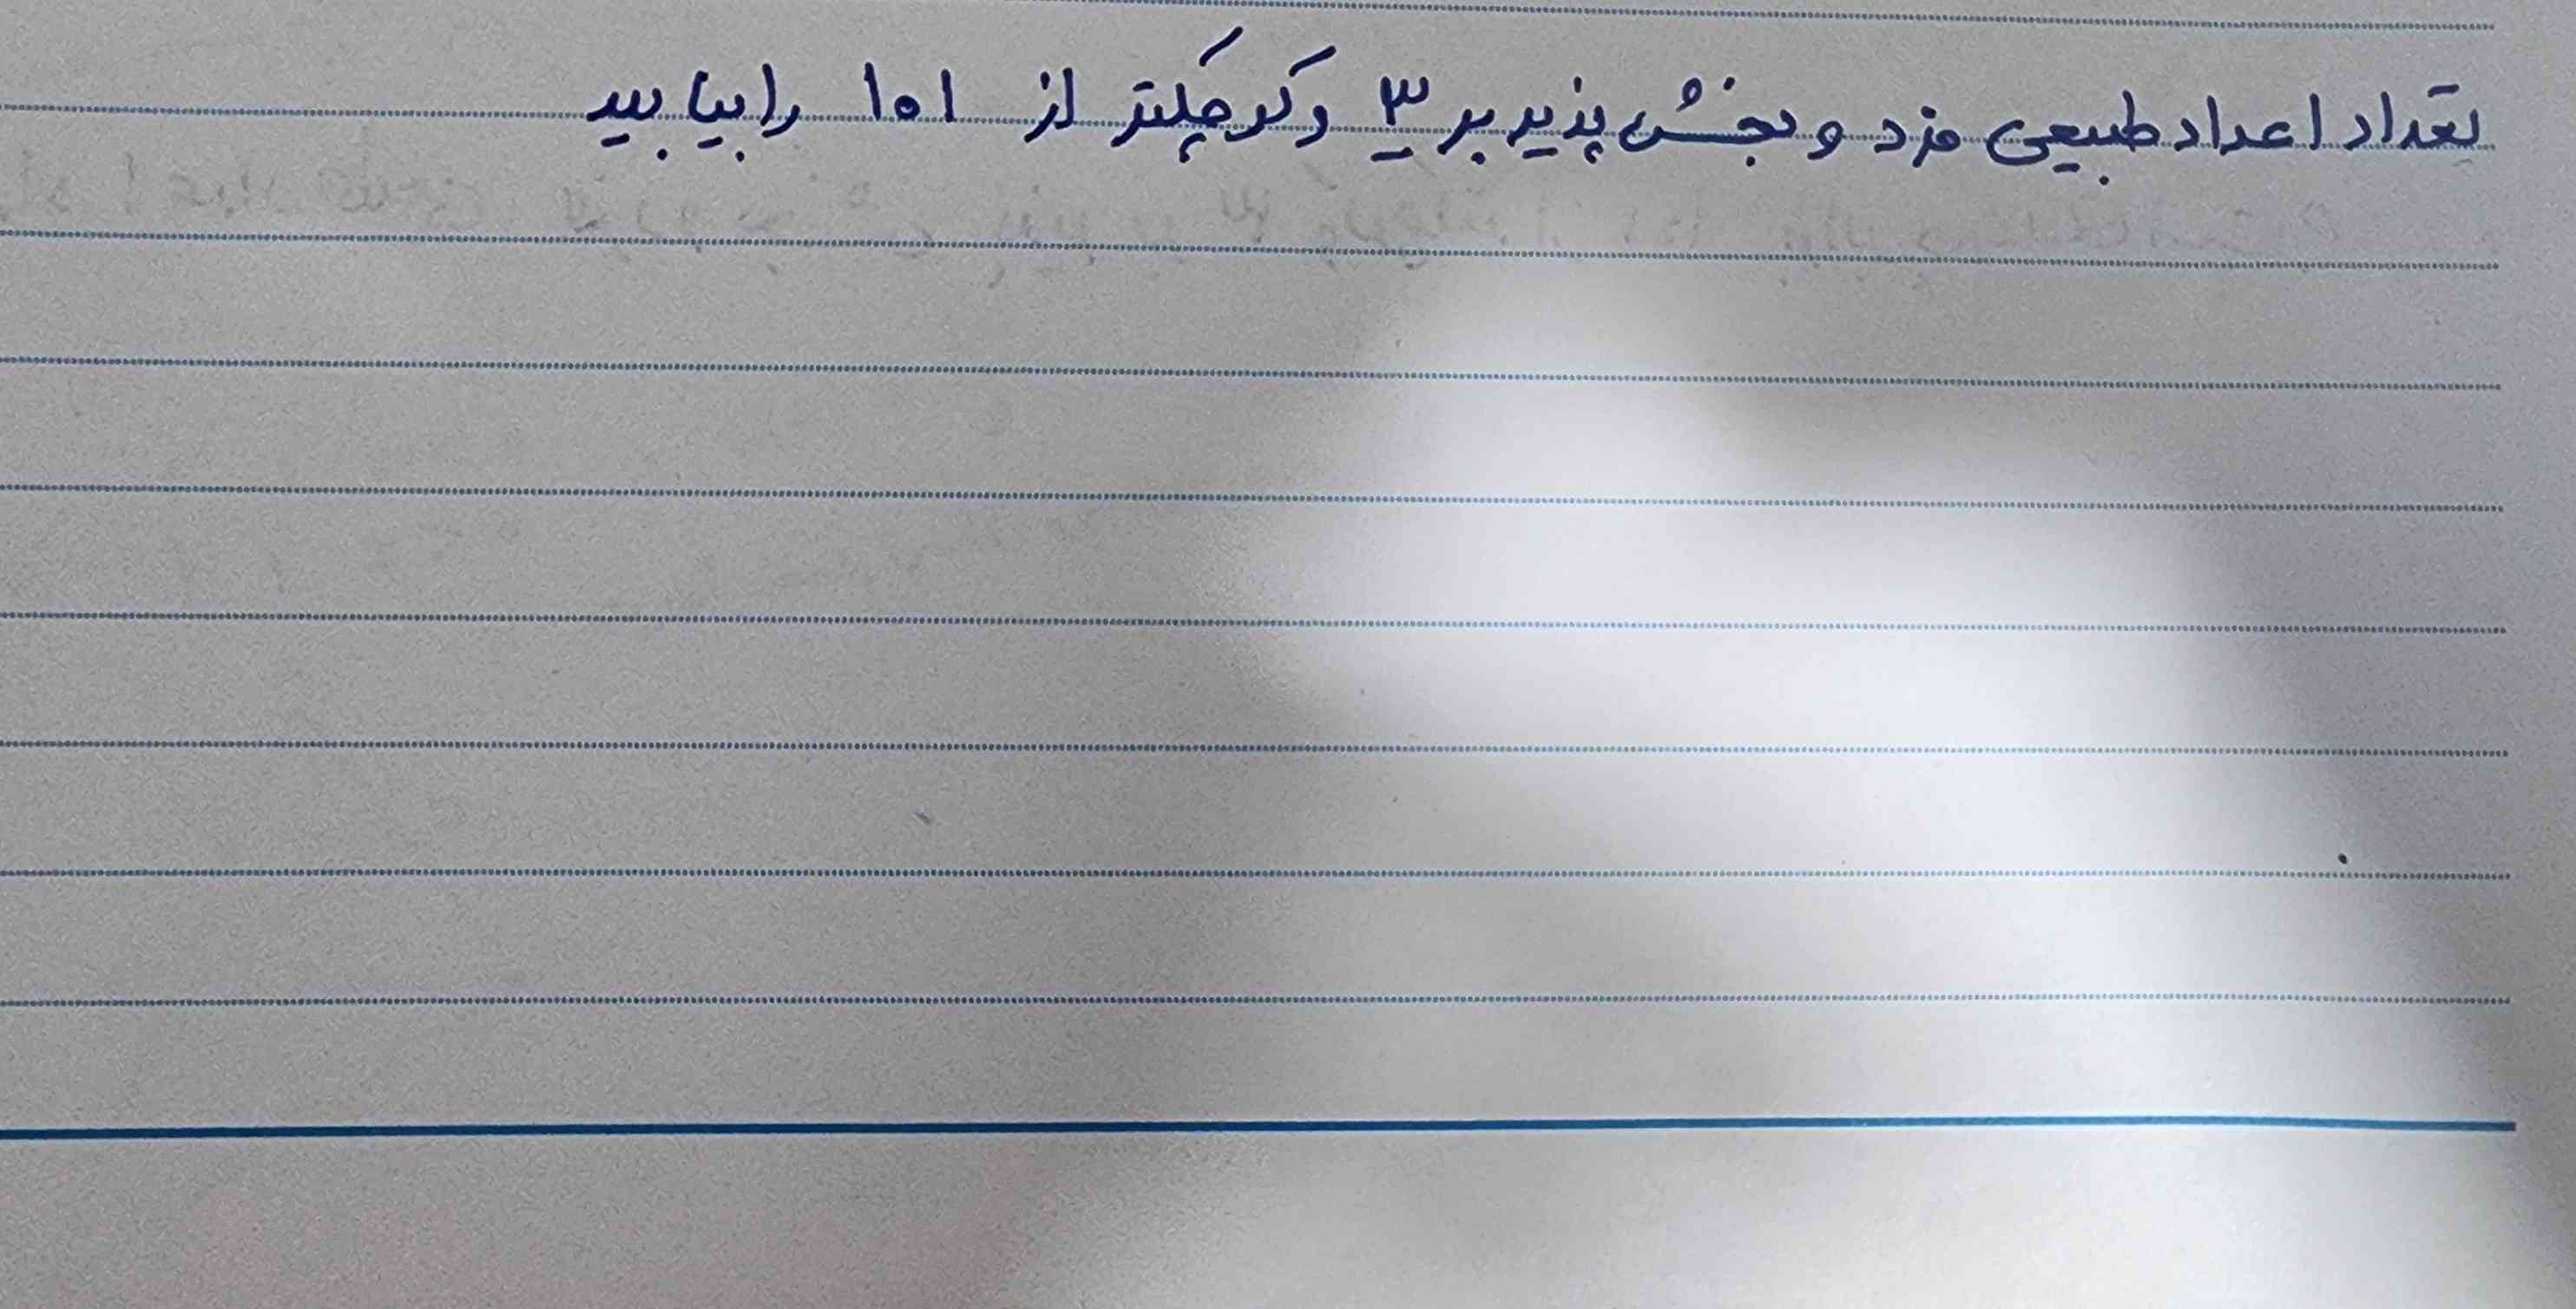 تعداد اعداد طبیعی فرد و بخش پذیر بر ۳ و کوچکتر از ۱۰۱ را بیابید